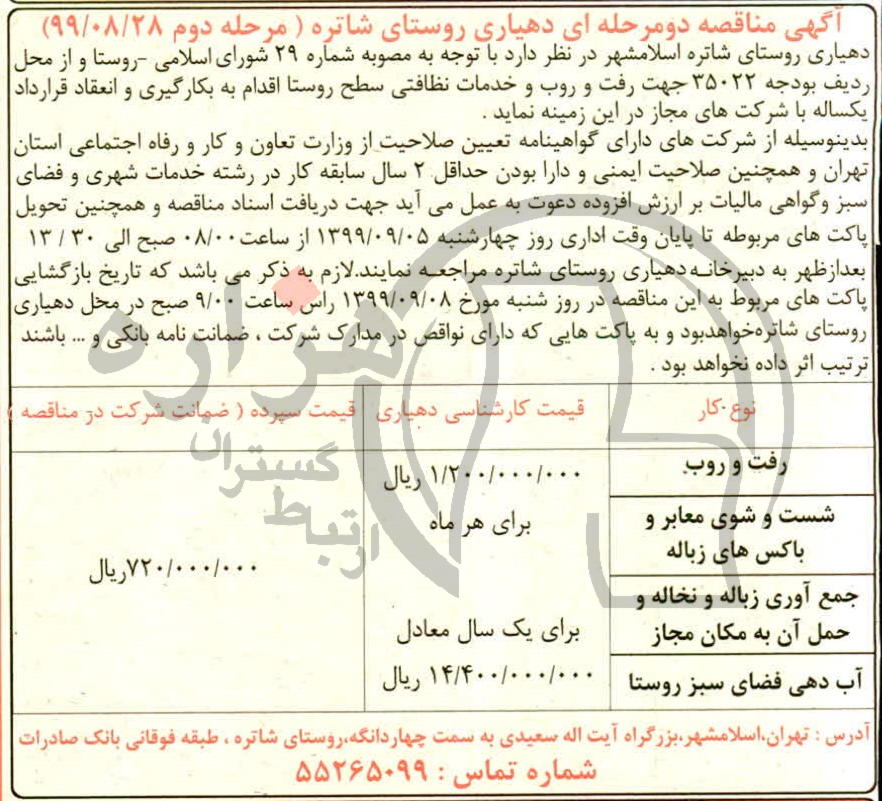 آگهی مناقصه دومرحله ای دهیاری روستای شاتره ( مرحله دوم ۹۹/۰۸/۲۸)
دهیاری روستای شاتره اسلامشهر در نظر دارد با توجه به مصوبه شماره ۲۹ شورای اسلامی -روستا و از محل
ردیف بودجه ۳۵۰۲۲ جهت رفت و روب و خدمات نظافتی سطح روستا اقدام به بکارگیری و انعقاد قرارداد
یکساله با شرکت های مجاز در این زمینه نماید .
بدینوسیله از شرکت های دارای گواهینامه تعیین صلاحیت از وزارت تعاون و کار و رفاه اجتماعی استان
تهران و همچنین صلاحیت ایمنی و دارا بودن حداقل ۲ سال سابقه کار در رشته خدمات شهری و فضای
سبز وگواهی مالیات بر ارزش افزوده دعوت به عمل می آید جهت دریافت اسناد مناقصه و همچنین تحویل
پاکت های مربوطه تا پایان وقت اداری روز چهارشنبه ۱۳۹۹/۰۹/۰۵ از ساعت ۰۸/۰۰ صبح الی ۳۰ / ۱۳
بعدازظهر به دبیرخانه دهیاری روستای شاتره مراجعه نمایند.لازم به ذکر می باشد که تاریخ بازگشایی
پاکت های مربوط به این مناقصه در روز شنبه مورخ ۱۳۹۹/۰۹/۰۸ راس ساعت ۹/۰۰ صبح در محل دهیاری
روستای شاتره‌خواهدبود و به پاکت هایی که دارای نواقص در مدارک شرکت ، ضمانت نامه بانکی و ... باشند
ترتیب اثر داده نخواهد بود .
نوع کار
قیمت کارشناسی دهیاری
قیمت سپرده ( ضمانت شرکت در مناقصه )
رفت و روب
شست و شوی معابر و
باکس های زباله
جمع آوری زباله و نخاله و
حمل آن به مکان مجاز
آب دهی فضای سبز روستا
۱/۲۰۰/۰۰۰/۰۰۰ ریال
برای هر ماه
برای یک سال معادل
۱۴/۴۰۰/۰۰۰/۰۰۰ ریال
۷۲۰/۰۰۰/۰۰۰ریال
آدرس : تهران،اسلامشهر،بزرگراه آیت اله سعیدی به سمت چهاردانگه،روستای شاتره ، طبقه فوقانی بانک صادرات
شماره تماس : ۵۵۲۶۵۰۹۹
هزاره
گستران
ارتباط